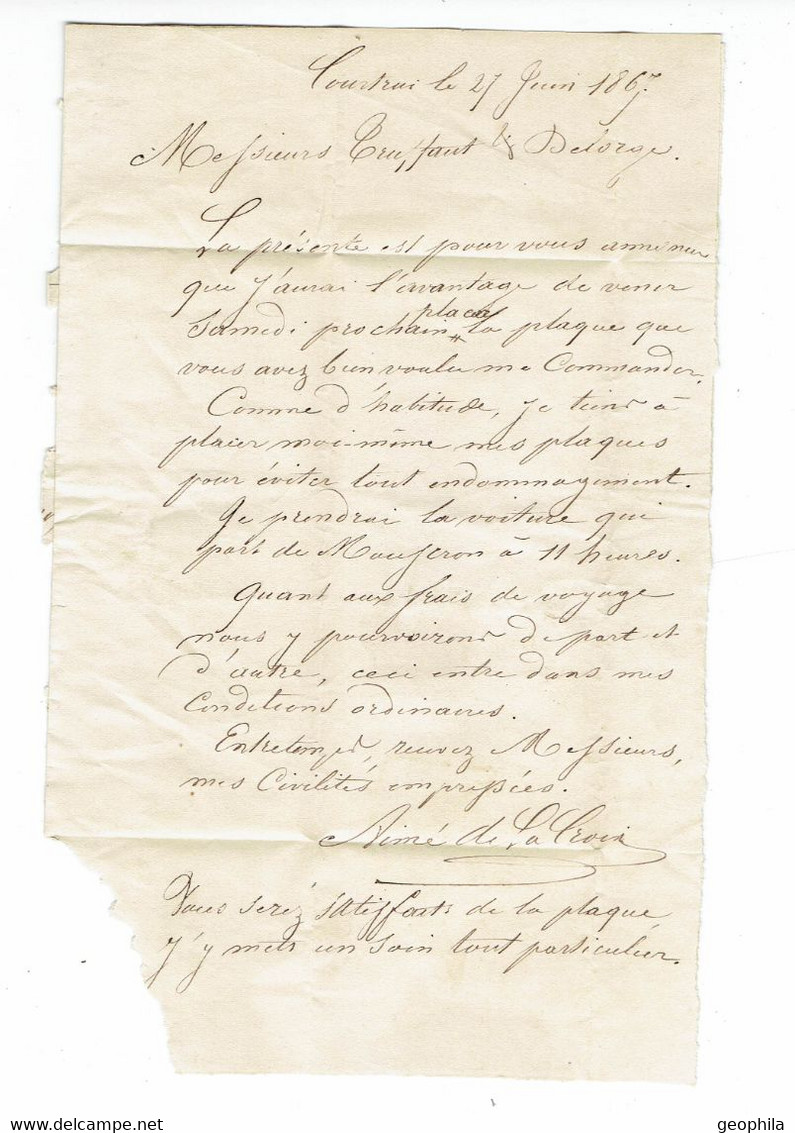 Courtrai le 27 Juin 1867
Messieurs Truffaut & Delorge.
La présente est pour vous annoncer
que j'aurai l'avantage de venir
placer
Samedi prochain " la plaque que
vous avez bien voulu me Commander.
Comme d'habitude, je tiens à
placer moi-même mes plaques
pour éviter tout endommagement.
Je prendrai la voiture qui
part de Mouscron à 11 heures.
Quant aux frais de voyage
nous y pourvoirons de part et
d'autre, ceci entre dans mes
Conditions ordinaires.
Entretemps, recevez Messieurs,
mes Civilités empressées.
Aimé de La Croix
Vous serez satisfaits de la plaque,
j'y mets un soin tout particulier.
delcampe.net
geophila